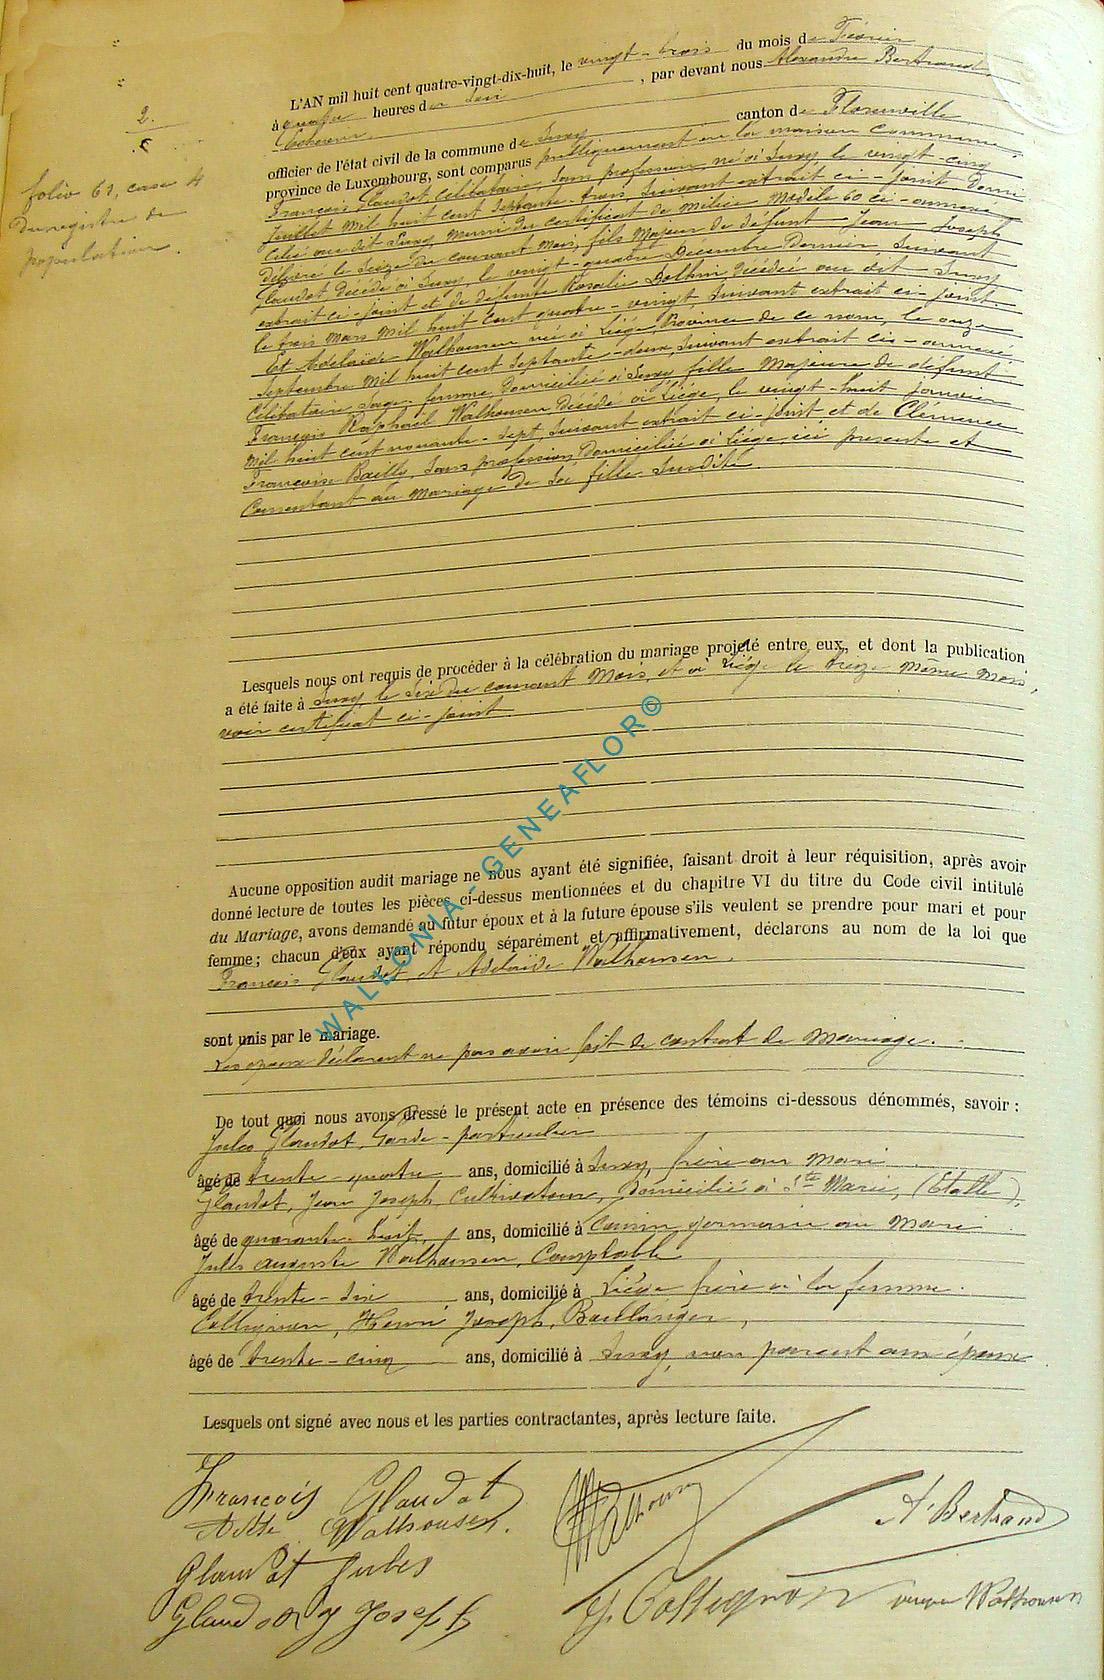 2.
folio 61, case 4
du registre de
population.
L'AN mil huit cent quatre-vingt-dix-huit, le vingt-trois du mois de Février
à quatre heures du soir, par devant nous Alexandre Bertrand,
Echevin
officier de l'état civil de la commune de Izel canton de Florenville
province de Luxembourg, sont comparus publiquement en la maison commune,
François Glaudot, Célibataire, Sans profession, né à le vingt-cinq
Juillet mil huit cent septante-trois, suivant extrait ci-joint domi
cilié au dit muni du certificat de milice Modèle 60 ci-annexé
délivré le Seize du courant mois, fils Majeur de défunt Jean Joseph
Glaudot décédé à le vingt-quatre Décembre dernier suivant
extrait ci-joint et de défunte Rosalie décédée au dit
le trois Mars mil huit cent quatre-vingt, suivant extrait ci-joint.
Et Adelaïde Walhausen née à Liége, Province de ce nom, le onze
Septembre mil huit cent septante-deux, suivant extrait ci-annexé,
Célibataire, Sage-femme domiciliée à fille Majeure de défunt
François Raphaël Walhausen décédé à Liége, le vingt-huit janvier
mil huit cent nonante-sept, suivant extrait ci-joint et de Clémence
Françoise Bailly, Sans profession, domiciliée à Liége, ici présente et
Consentant au mariage de sa fille Susdite.
Lesquels nous ont requis de procéder à la célébration du mariage projeté entre eux, et dont la publication
a été faite à le Six du courant Mois, et à Liége le treize même mois,
voir certificat ci-joint.
Aucune opposition audit mariage ne nous ayant été signifiée, faisant droit à leur réquisition, après avoir
donné lecture de toutes les pièces ci-dessus mentionnées et du chapitre VI du titre du Code civil intitulé
du Mariage, avons demandé au futur époux et à la future épouse s'ils veulent se prendre pour mari et pour
femme; chacun d'eux ayant répondu séparément et affirmativement, déclarons au nom de la loi que
François Glaudot, et Adelaïde Walhausen.
sont unis par le mariage.
Les époux déclarent ne pas avoir fait de contrat de mariage.
De tout quoi nous avons dressé le présent acte en présence des témoins ci-dessous dénommés, savoir :
Jules Glaudot, Garde-particulier
âgé de trente-quatre ans, domicilié à frère au mari
Glaudot, Jean Joseph, Cultivateur, domicilié à Ste Marie, (Etalle),
âgé de quarante-huit, ans, domicilié à Cousin germain au mari
Jules Auguste Walhausen, Comptable
âgé de trente-six ans, domicilié à Liége frère à la femme.
Collignon, Henri Joseph, Boulanger,
âgé de trente-cinq ans, domicilié à non parent aux époux
Lesquels ont signé avec nous et les parties contractantes, après lecture faite.
François Glaudot
Walhausen
A. Bertrand
Adèle Walhausen.
Glaudot Jules
Glaudot J Joseph
J. Collignon
veuve Walhausen
WALLONIA-GENEAFLOR©